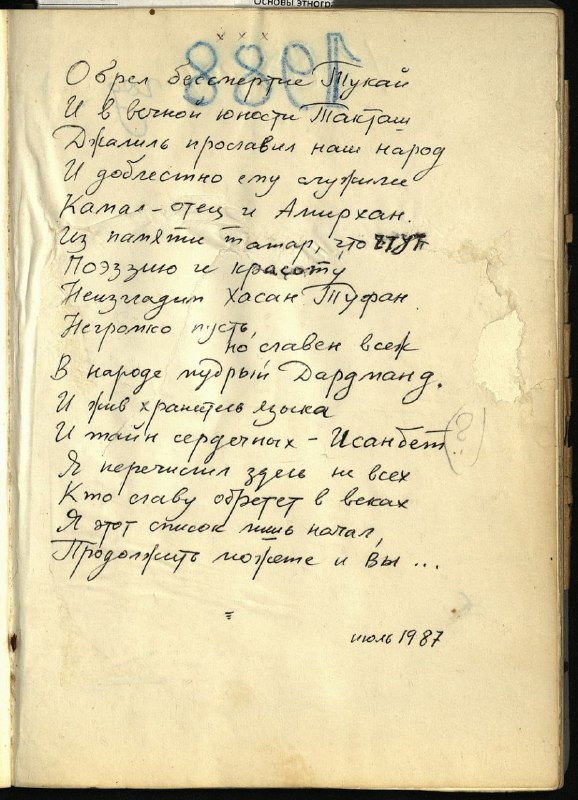 Основы этногра
х х х
1988
Обрел бессмертие Тукай
И в вечной юности Такташ
Джалиль прославил наш народ
И доблестно ему служили
Камал - отец и Амирхан.
Из памяти татар, что чтут
Поэззию и красоту
Неизгладим Хасан Туфан
Негромко пусть,
но славен всеж
В народе мудрый Дардманд.
И жив хранитель языка
И тайн сердечных - Исанбет (?)
Я перечислил здесь не всех
Кто славу обретет в веках
Я этот список лишь начал,
Продолжить можете и Вы ...
=
июль 1987